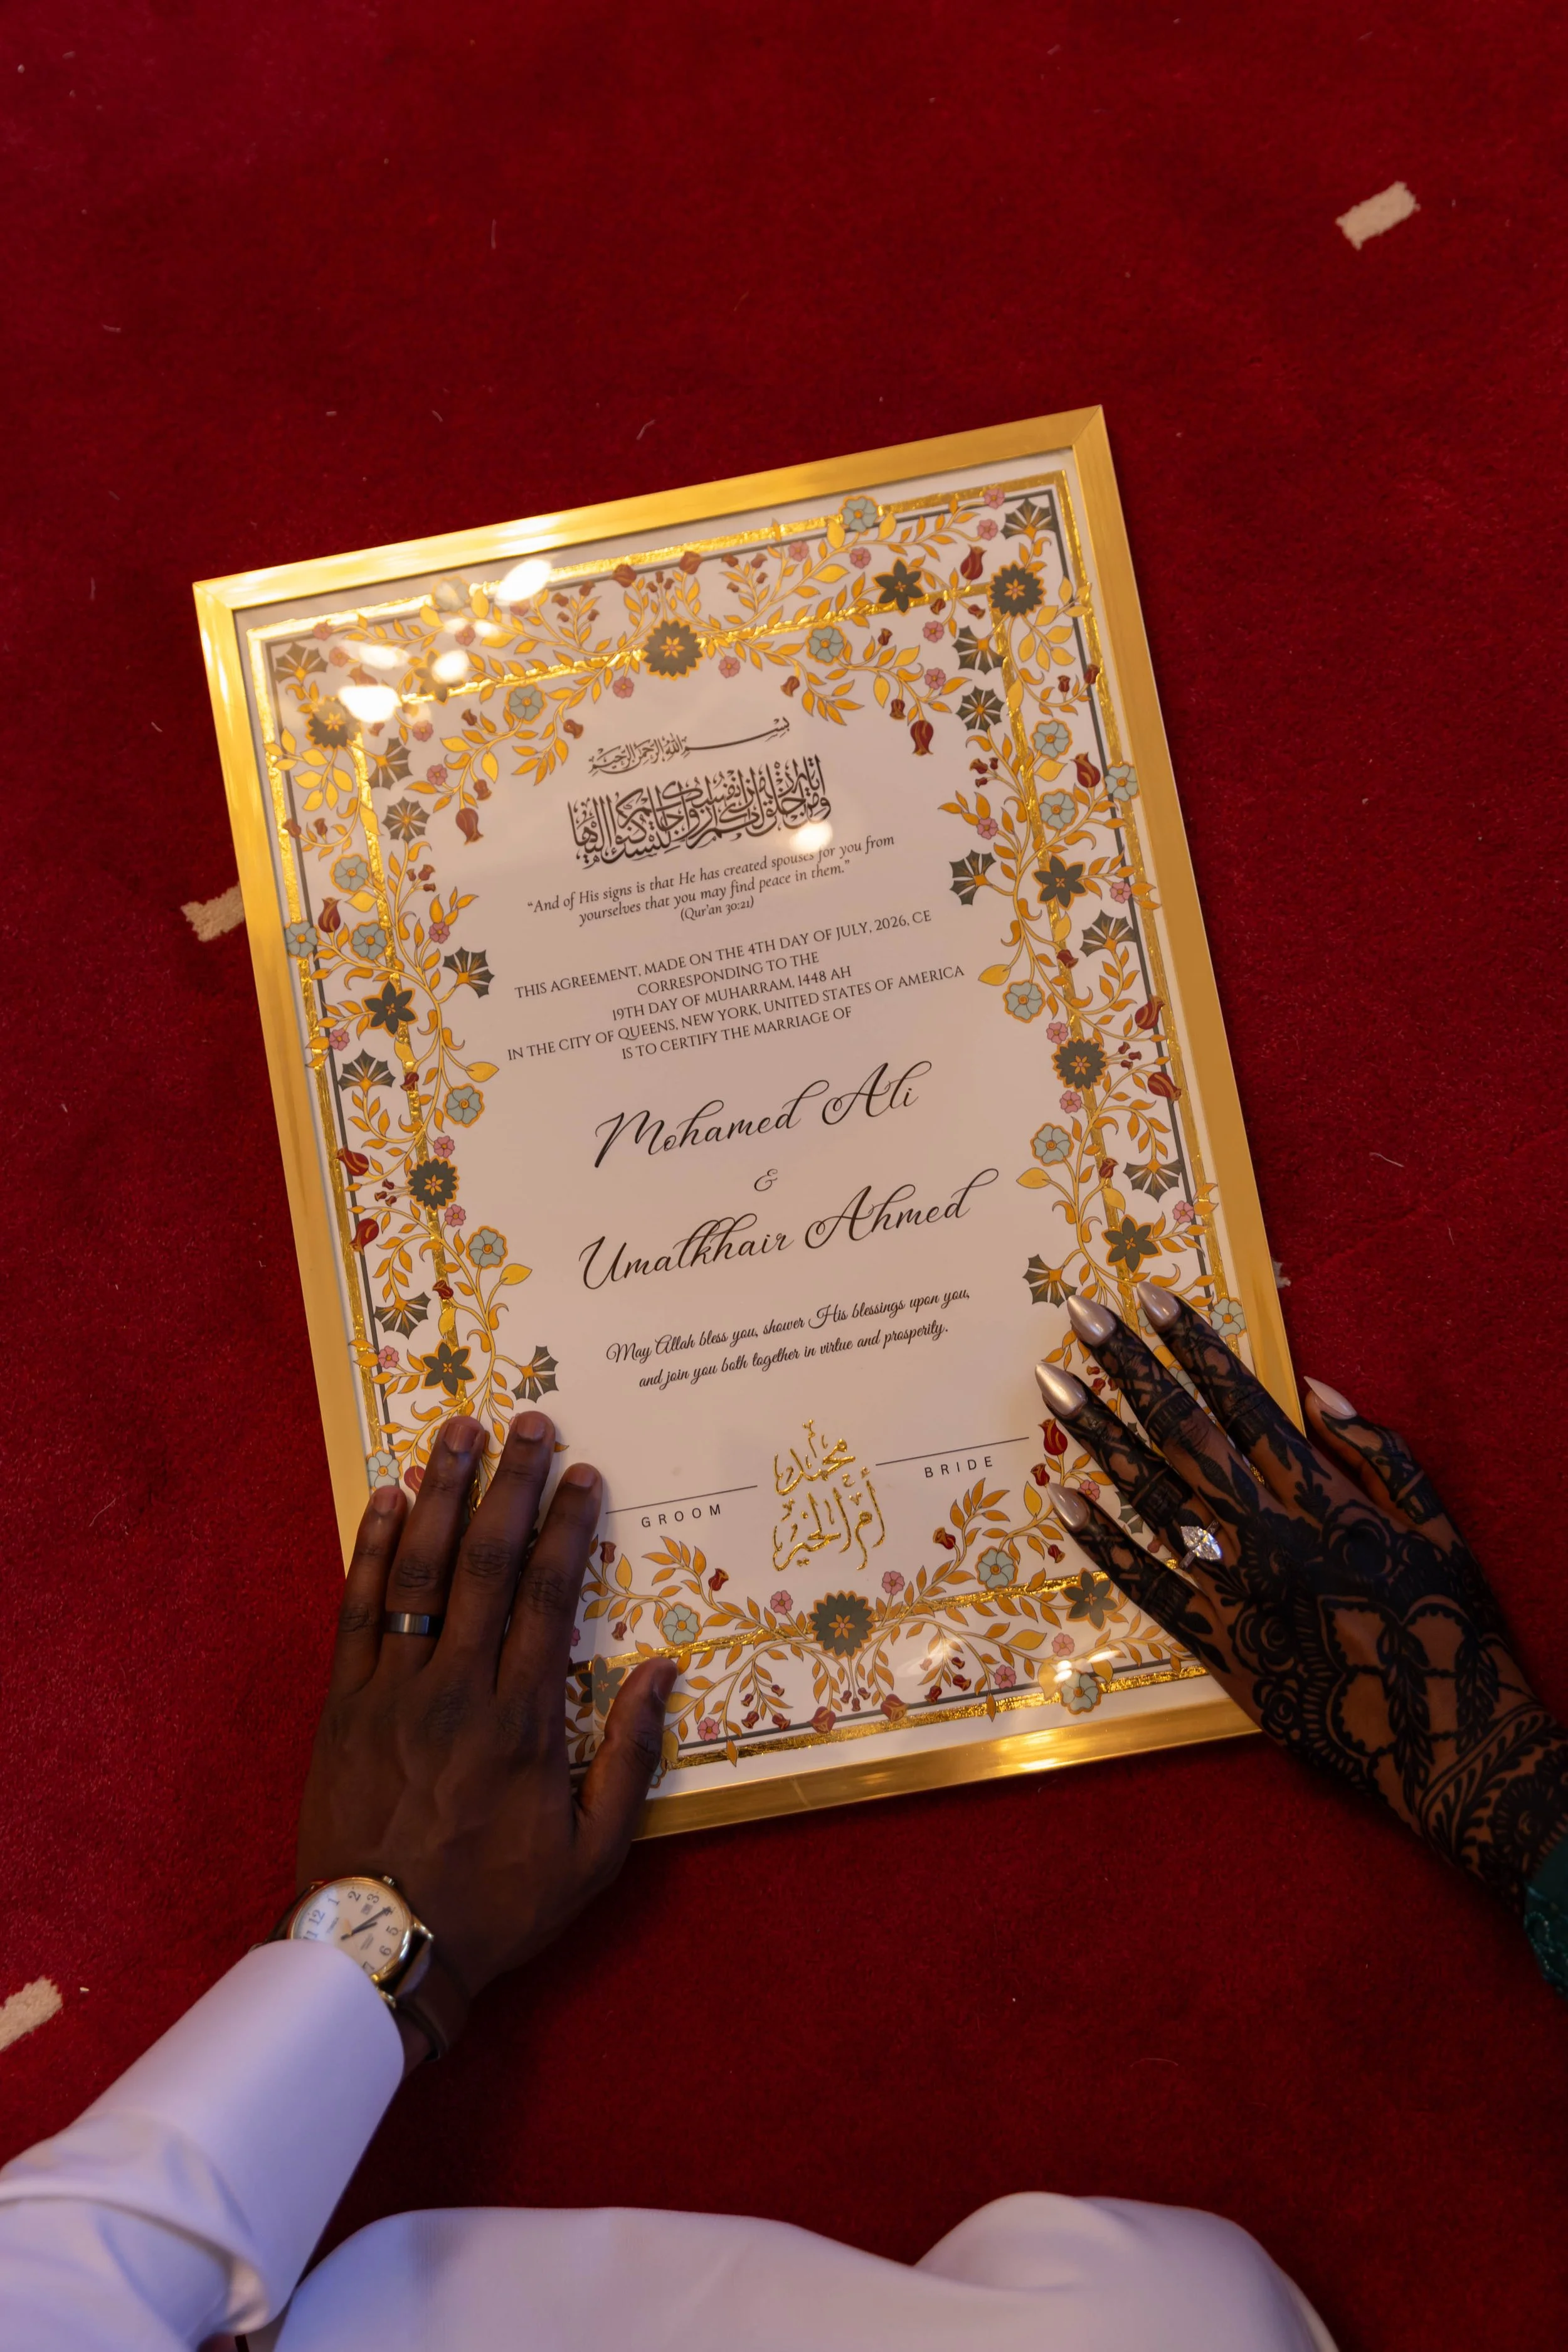 بسم الله الرحمن الرحيم
ومن آياته أن خلق لكم من أنفسكم أزواجا لتسكنوا إليها
“And of His signs is that He has created spouses for you from
yourselves that you may find peace in them.”
(Qur'an 30:21)
THIS AGREEMENT, MADE ON THE 4TH DAY OF JULY, 2026, CE
CORRESPONDING TO THE
19TH DAY OF MUHARRAM, 1448 AH
IN THE CITY OF QUEENS, NEW YORK, UNITED STATES OF AMERICA
IS TO CERTIFY THE MARRIAGE OF
Mohamed Ali
&
Umalkhair Ahmed
May Allah bless you, shower His blessings upon you,
and join you both together in virtue and prosperity.
GROOM
محمد
أم الخير
BRIDE
11 12 1 2 3 5 6 7